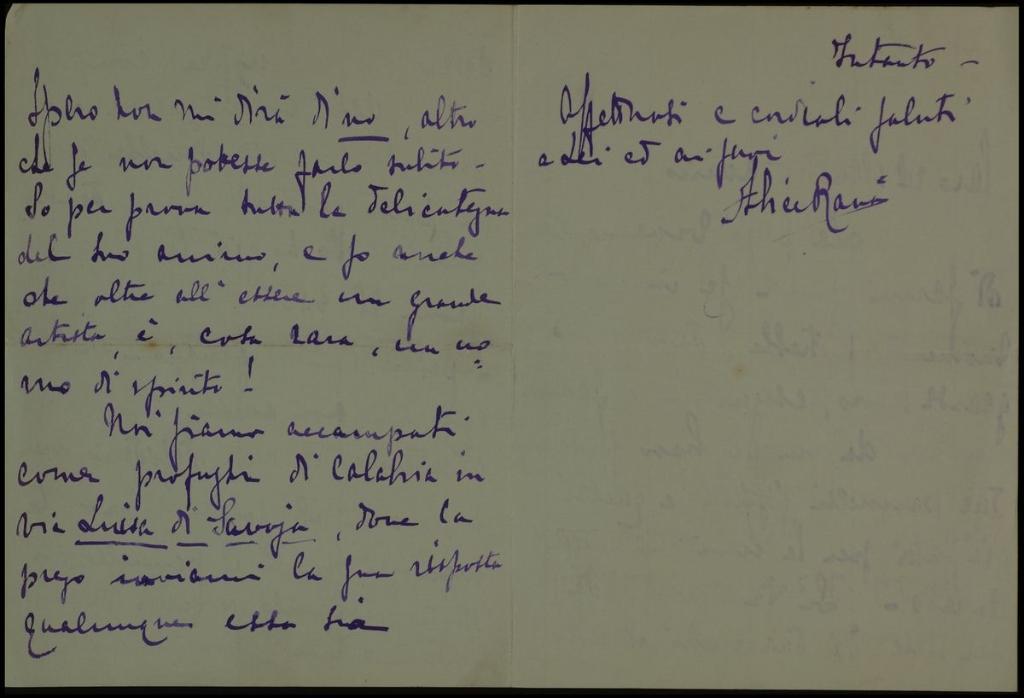 Spero non mi dirà di no, altro
che se non potesse farlo subito -
So per prova tutta la delicatezza
del suo animo, e so anche
che oltre all'essere un grande
artista, è, cosa rara, un uo=
mo di spirito!
Noi siamo accampati
come profughi di Calabria in
via Luisa di Savoja, dove la
prego inviarmi la sua risposta
qualunque essa sia
Intanto -
Affettuosi e cordiali saluti
a Lei ed ai suoi